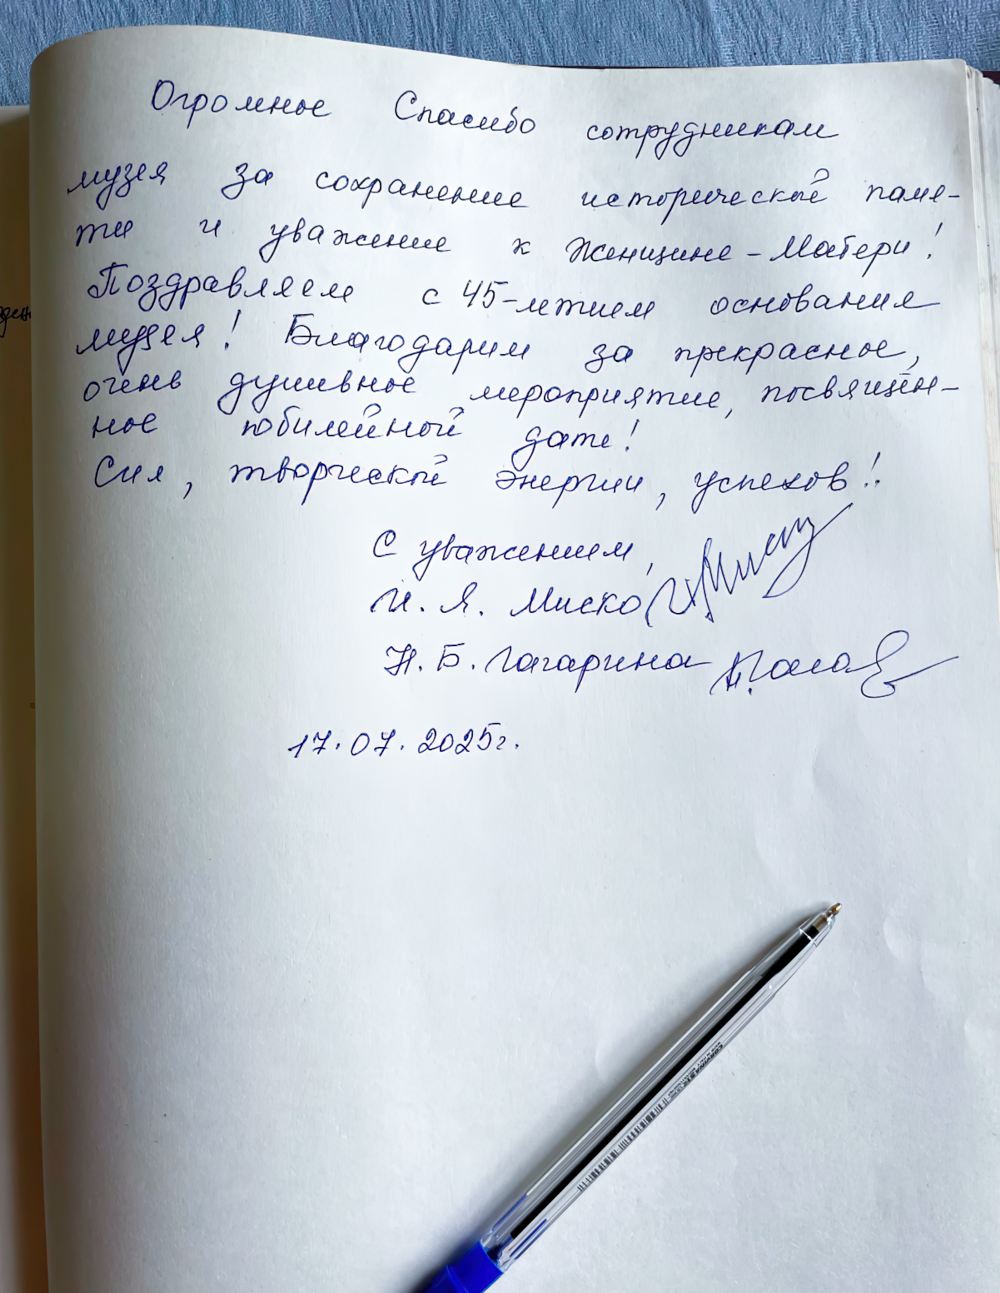 Огромное Спасибо сотрудникам
музея за сохранение исторической памя-
ти и уважение к Женщине-Матери!
Поздравляем с 45-летием основания
музея! Благодарим за прекрасное,
очень душевное мероприятие, посвящён-
ное юбилейной дате!
Сил, творческой энергии, успехов!!
С уважением,
И. Я. Миско
Н. Б. Гагарина
17.07.2025г.